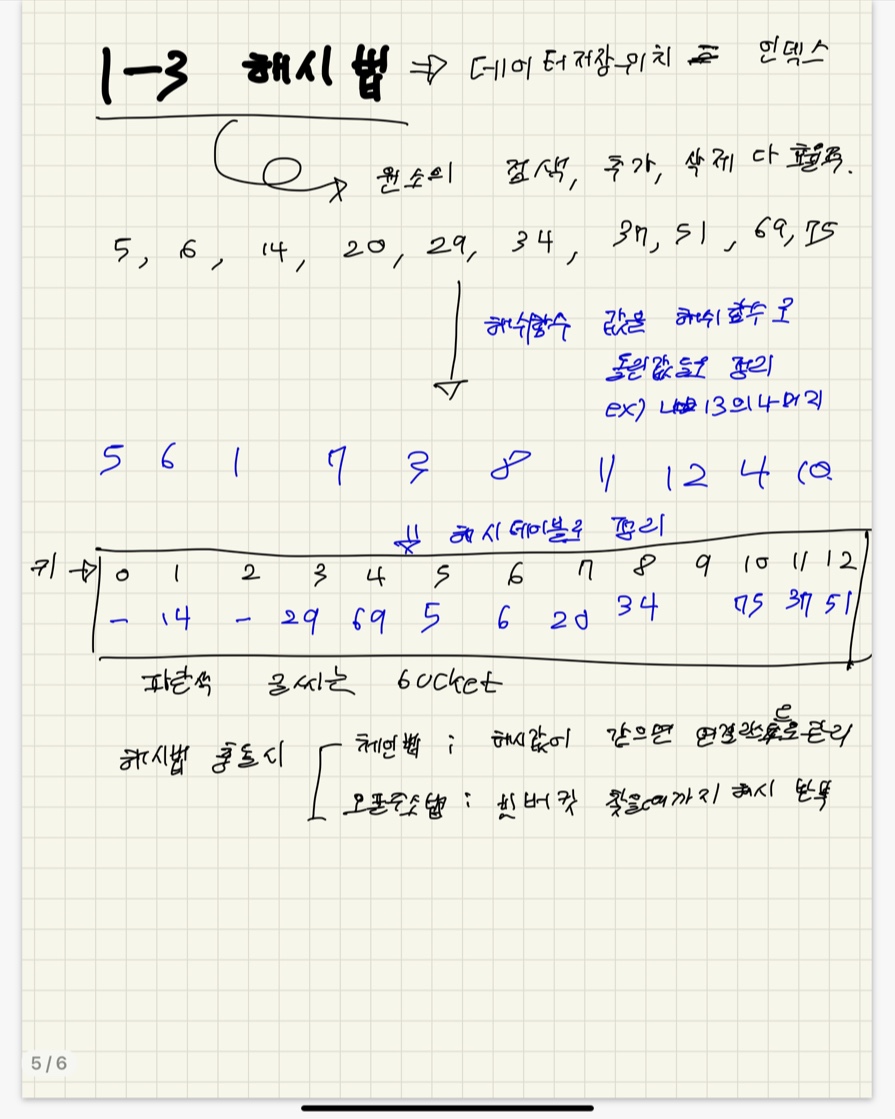 1-3 해시법 ⇒ 데이터저장위치 = 인덱스
원소의 검색, 추가, 삭제 다 효율적.
5, 6, 14, 20, 29, 34, 37, 51, 69, 75
해쉬함수 값을 해쉬함수로
돌린값들로 정리
ex) 13의 나머지
5 6 1 7 3 8 11 12 4 10
⇓ 해시 테이블로 정리
키 → 0 1 2 3 4 5 6 7 8 9 10 11 12
- 14 - 29 69 5 6 20 34 75 37 51
파란색 글씨는 bucket
해시법 충돌시
체인법 : 해시값이 같으면 연결리스트로 관리
오픈주소법 : 빈 버킷 찾을때까지 해시 반복
5 / 6